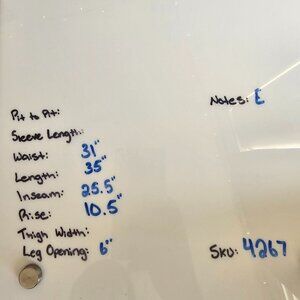 Pit to Pit:
Notes: E
Sleeve Length:
Waist: 31"
Length: 35"
Inseam: 25.5"
Rise: 10.5"
Thigh Width:
Leg Opening: 6"
Sku: 4267